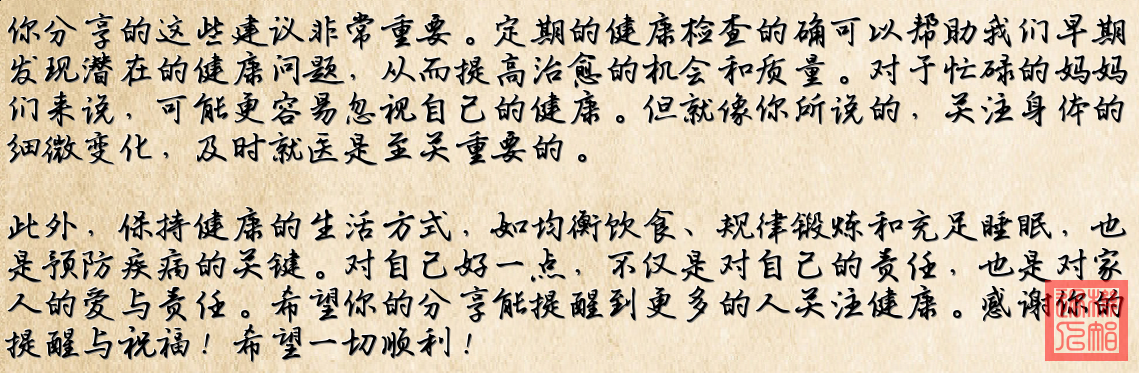 你分享的这些建议非常重要。定期的健康检查的确可以帮助我们早期
发现潜在的健康问题，从而提高治愈的机会和质量。对于忙碌的妈妈
们来说，可能更容易忽视自己的健康。但就像你所说的，关注身体的
细微变化，及时就医是至关重要的。
此外，保持健康的生活方式，如均衡饮食、规律锻炼和充足睡眠，也
是预防疾病的关键。对自己好一点，不仅是对自己的责任，也是对家
人的爱与责任。希望你的分享能提醒到更多的人关注健康。感谢你的
提醒与祝福！希望一切顺利！